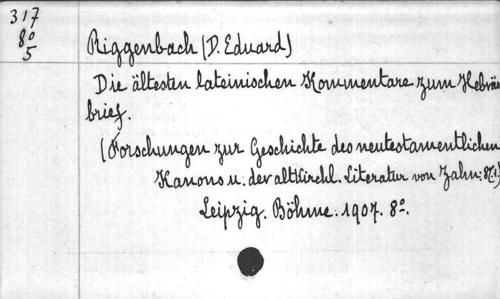 317
8º
5
Riggenbach (D. Eduard)
Die ältesten lateinischen Kommentare zum Hebräer
brief.
(Forschungen zur Geschichte des neutestamentlichen
Kanons u. der altkirchl. Literatur von Zahn: 8,1.)
Leipzig. Böhme. 1907. 8º.